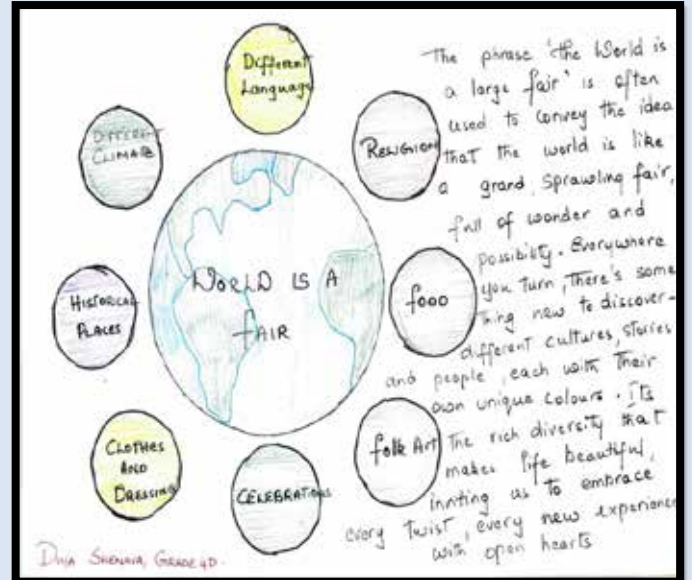 Different
Language
DIFFERENT
CLIMATE
RELIGION
WORLD IS A
FAIR
HISTORICAL
PLACES
food
CLOTHES
AND
DRESSING
CELEBRATIONS
folk Art
The phrase 'the World is
a large fair' is often
used to convey the idea
that the world is like
a grand, sprawling fair,
full of wonder and
possibility. Everywhere
you turn, there's some
thing new to discover-
different cultures, stories
and people, each with their
own unique colours. Its
The rich diversity that
makes life beautiful,
inviting us to embrace
every twist, every new experience
with open hearts
SHENAVA, GRADE 4D.